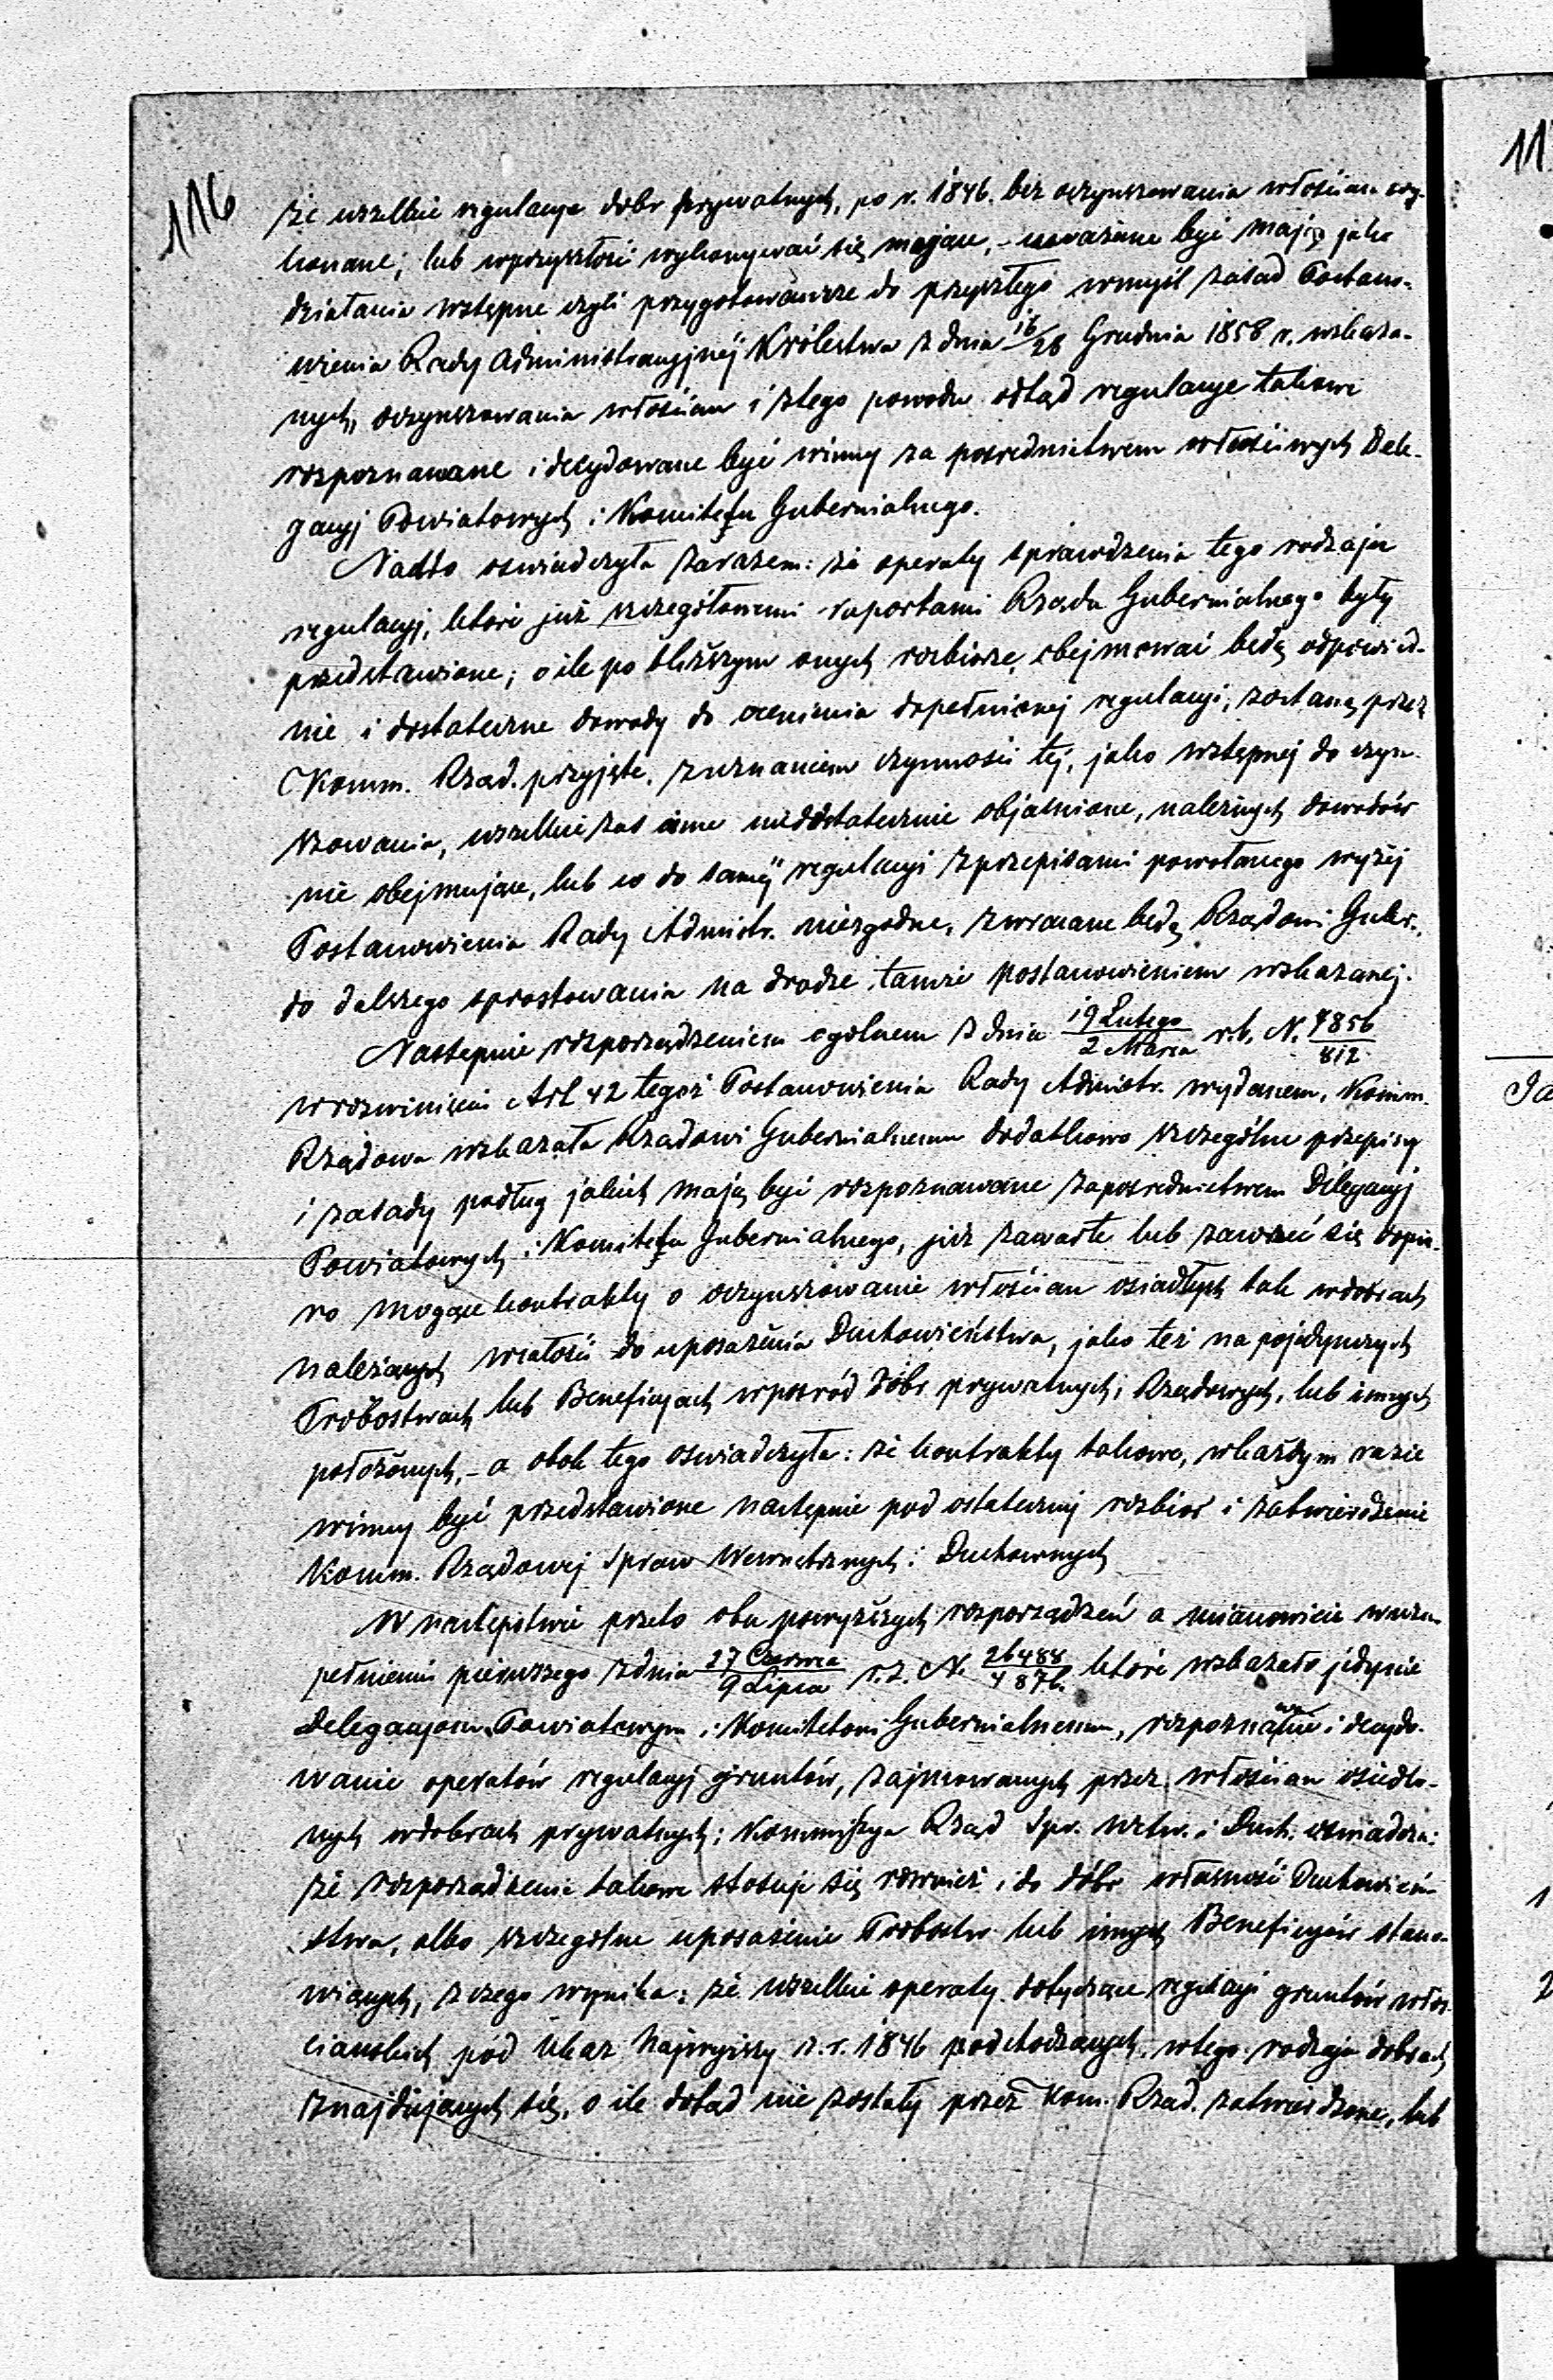 116
że wszelkie regulacye dobr prywatnych, po r. 1846. bez oczynszowania włościan wy-
konane; lub wprzyszłosci wykonywać się mające, - uważane być mają jako
działania wstępne czyli przygotowawcze do przyszłego wmyśl zasad Postano-
wienia Rady Administracyjnéj Królestwa z dnia 16/28 Grudnia 1858 r. wskaza-
nych, oczynszowania włościan i ztego powodu odtąd regulacye takowe
rozpoznawane i decydowane być winny za pośrednictwem właściwych Dele-
gacyj Powiatowych i Komitetu Gubernialnego.
Nadto oswiadczyła zarazem: że operaty sprawdzenia tego rodzaju
regulacyj, które już szczegółowemi raportami Rządu Gubernialnego były
przedstawione; o ile po bliższym onych rozbiorze, obejmować będą odpowied-
nie i dostateczne dowody do ocenienia dopełnionej regulacyi, zostaną przez
Komm. Rząd. przyjęte, zuznaniem czynności tej, jako wstępnej do czyn-
szowania, wszelkie zaś inne niedostatecznie objaśnione, należnych dowodów
nie obejmujące, lub co do saméj regulacyi zprzepisami powołanego wyżéj
Postanowienia Rady Admistr. niezgodne, zwracane będą Rządowi Guber.,
do dalszego sprostowania na drodze tamże postanowieniem wskazanej.
Nastepnie rozporządzeniem ogolnem z dnia 19 Lutego/2 Marca r.b. N. 7856/812
wrozwinięciu Art 42 tegoż Postanowienia Rady Admistr. wydanem, Komm.
Rządowa wskazała Rządowi Gubernialnemu dodatkowo szczególne przepisy
i zasady podług jakich mają być rozpoznawane zapośrednictwem Delegacyj
Powiatowych i Komitetu Gubernialnego, już zawarte lub zawrzeć się dopie-
ro mogące kontrakty o oczynszowanie włościan osiadłych tak wdobrach
należących wcałości do uposażenia Duchowieństwa, jako też na pojedynczych
Probostwach lub Beneficyach wpośród dóbr prywatnych, Rządowych, lub innych
położonych, - a obok tego oswiadczyła: że kontrakty takowe, wkażdym razie
winny być przedstawione następnie pod ostateczny rozbiór i zatwierdzenie
Komm. Rządowej Spraw Wewnetrznych i Duchownych
W następstwie przeto obu powyższych rozporządzeń a mianowicie wuzu-
pełnieniu pierwszego zdnia 27 Czerwca/9 Lipca r.z. N. 26488/4876. które wskazało jedynie
Delegacyom Powiatowym i Komitetowi Gubernialnemu, rozpoznawanie i decydo-
wanie operatów regulacyj gruntów, zajmowanych przez włościan osiedlo-
nych wdobrach prywatnych; Kommissya Rząd Spr. Wetw. i Duch. oswiadcza:
że rozporzadzenie takowe stosuje się rowniez i do dóbr własność Duchowień-
stwa, albo szczególne uposażenie Probostw lub innych Beneficyów stano-
wiących, zczego wynika: że wszelkie operaty dotyczące regulacyi gruntów włoś-
cianskich pod Ukaz Najwyższy z r. 1846 podchodzących, wtego rodzaju dobrach
znajdujących się, o ile dotąd nie zostały przez Kom. Rząd. zatwierdzone, lub
11
Ja
1
2